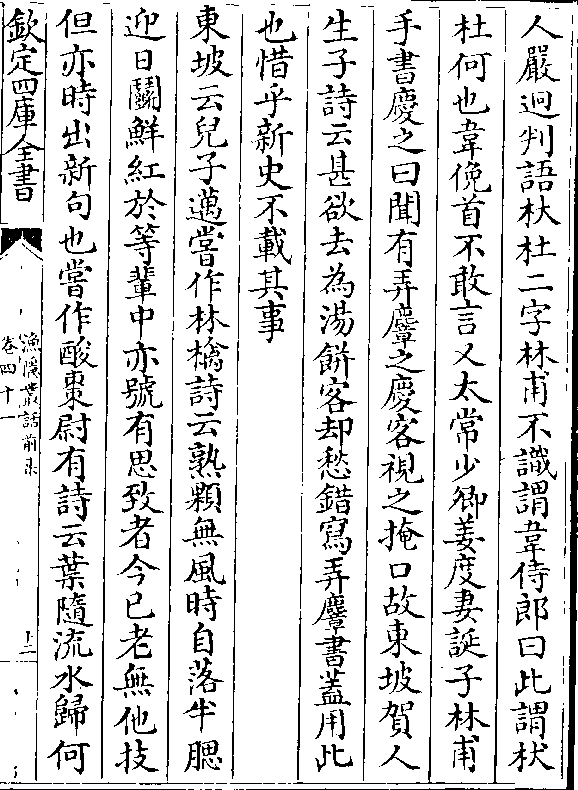 人嚴迥判語杕杜二字林甫不識謂韋侍郎曰此謂杕
杜何也韋俛首不敢言又太常少卿姜度妻誕子林甫
手書慶之曰聞有弄麞之慶客視之掩口故東坡賀人
生子詩云甚欲去為湯餅客却愁錯寫弄麞書蓋用此
也惜乎新史不載其事
東坡云兒子邁嘗作林檎詩云熟顆無風時自落半腮
迎日鬭鮮紅於等輩中亦號有思致者今已老無他技
但亦時出新句也嘗作酸棗尉有詩云葉隨流水歸何
欽定四庫全書
漁隱叢話前集
卷四十一
十二